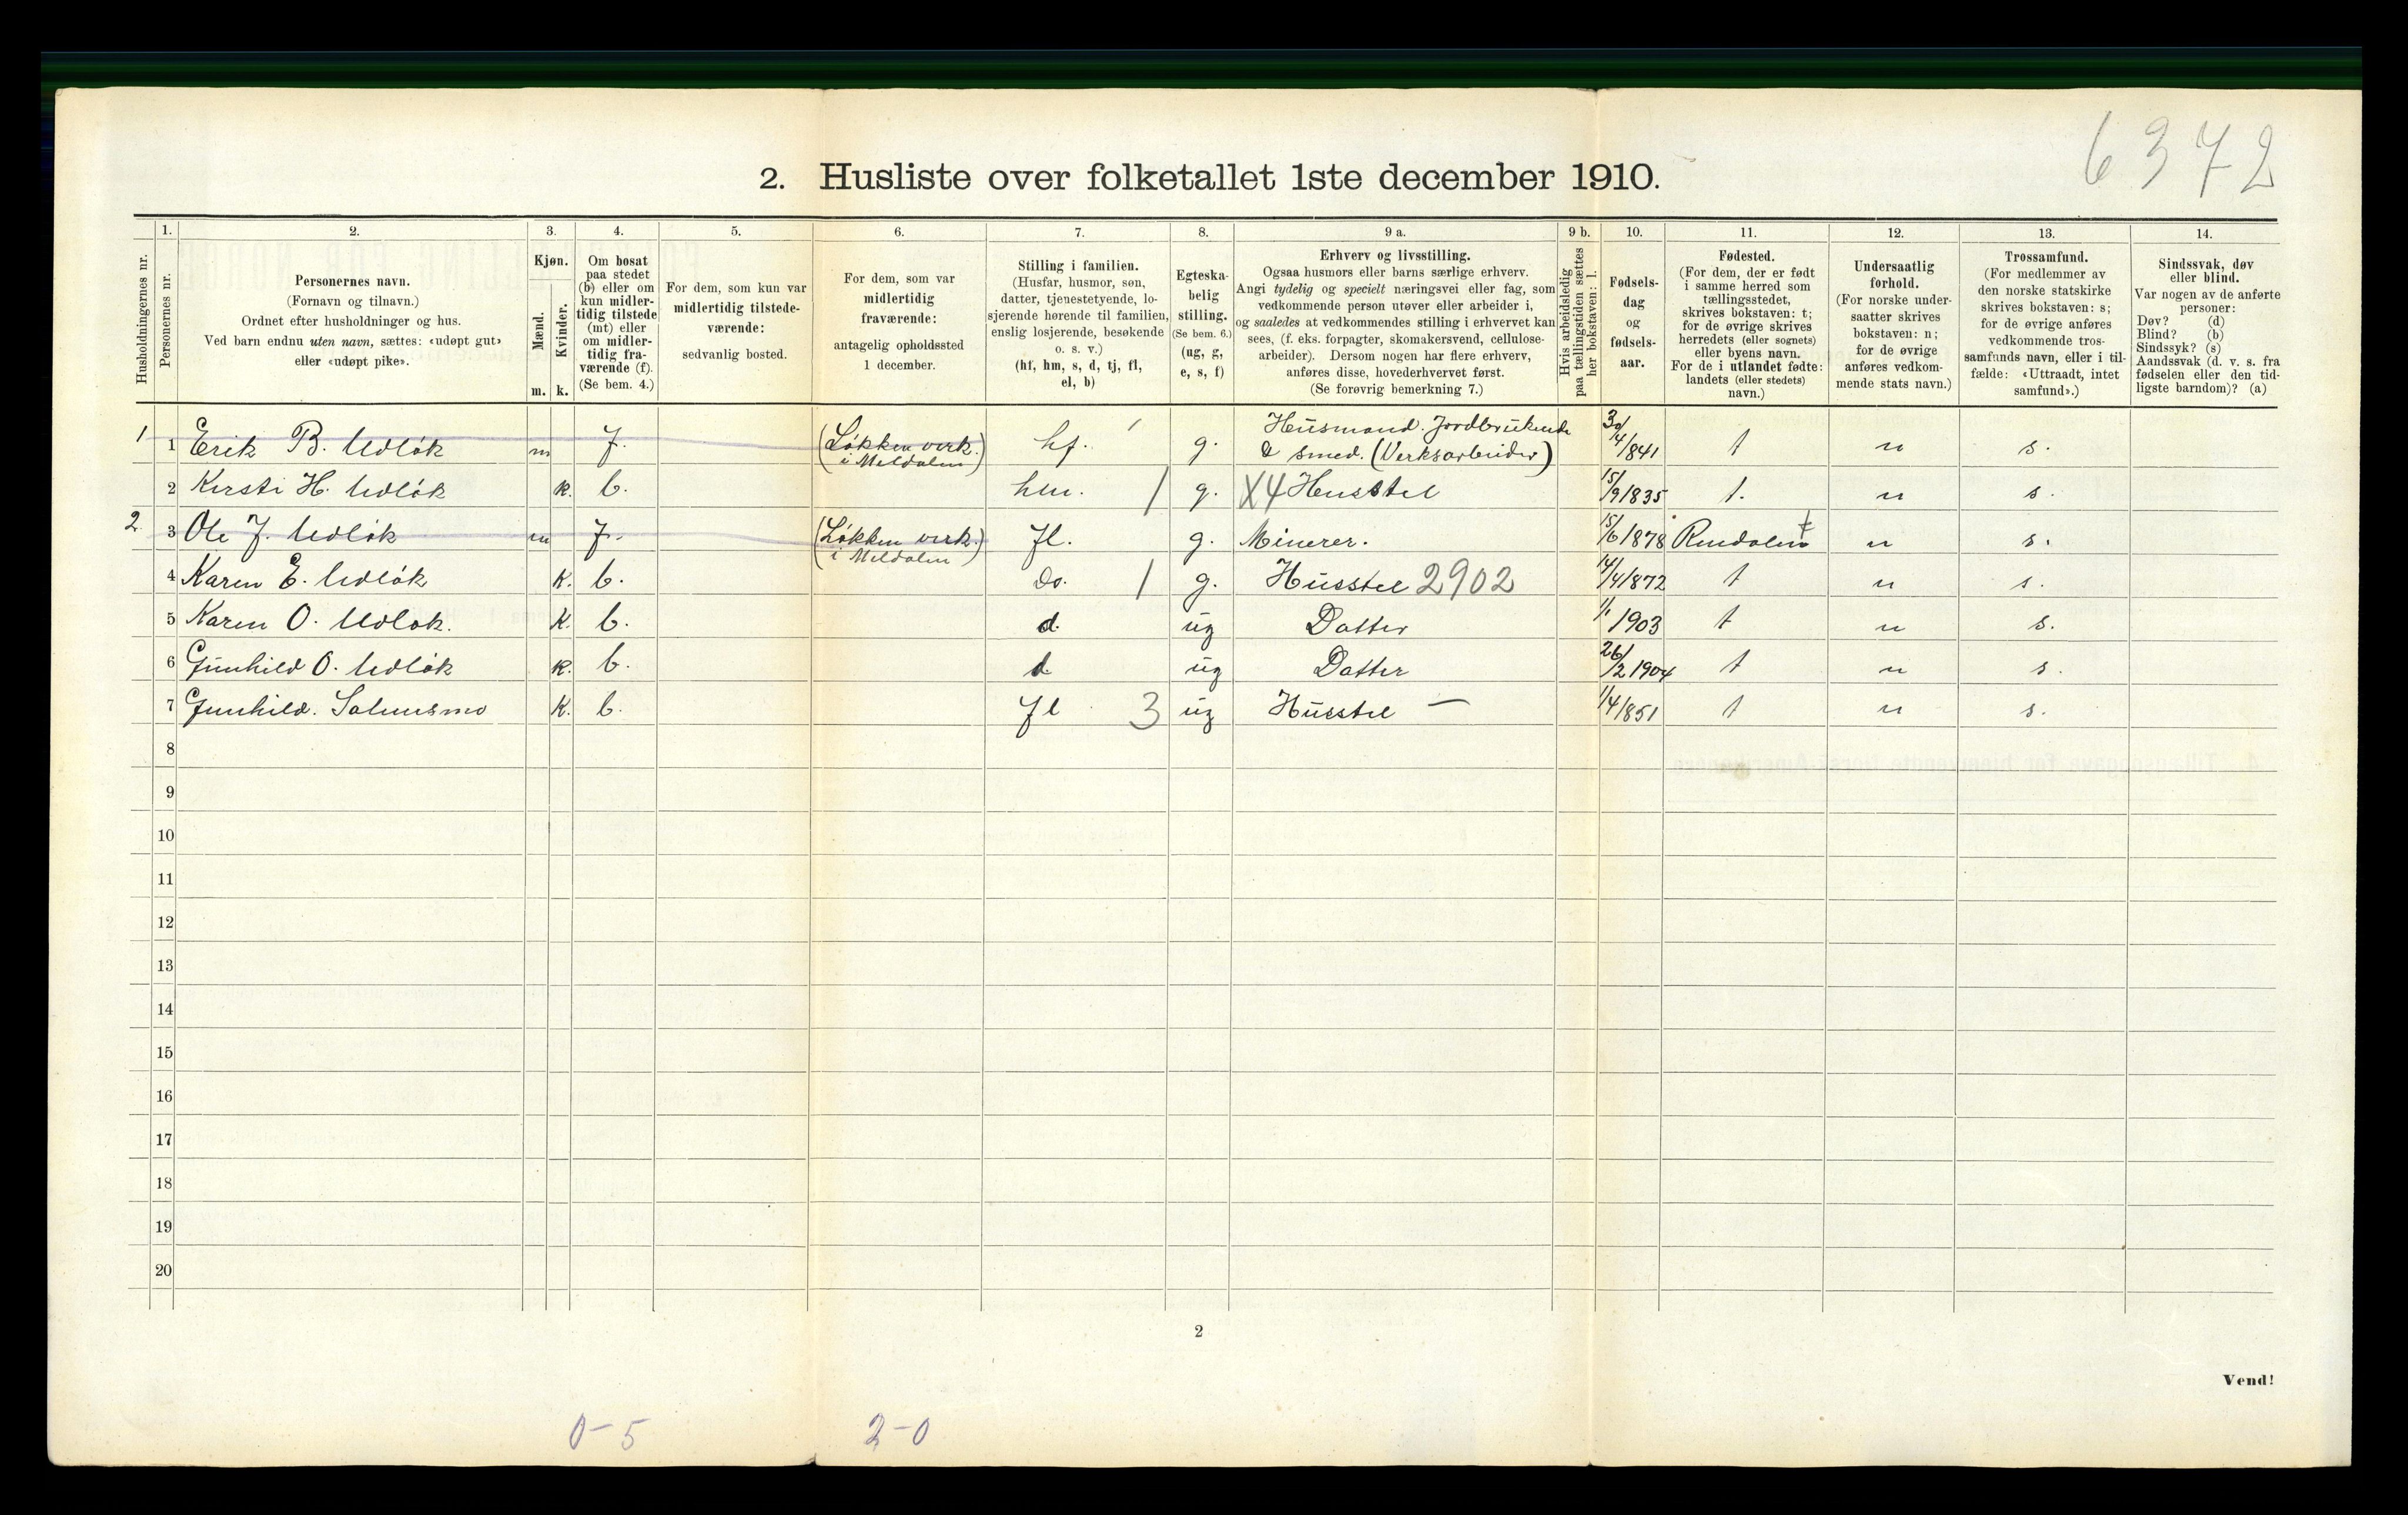 6372
2. Husliste over folketallet 1ste december 1910.
Husholdningernes nr.
1.
Personernes nr.
2.
Personernes navn.
(Fornavn og tilnavn.)
Ordnet efter husholdninger og hus.
Ved barn endnu uten navn, sættes: «udøpt gut»
eller «udøpt pike».
3.
Kjøn.
Mænd.
Kvinder.
m. k.
4.
Om bosat
paa stedet
(b) eller om
kun midler-
tidig tilstede
(mt) eller
om midler-
tidig fra-
værende (f).
(Se bem. 4.)
5.
For dem, som kun var
midlertidig tilstede-
værende:
sedvanlig bosted.
6.
For dem, som var
midlertidig
fraværende:
antagelig opholdssted
1 december.
7.
Stilling i familien.
(Husfar, husmor, søn,
datter, tjenestetyende, lo-
sjerende hørende til familien,
enslig losjerende, besøkende
o. s. v.)
(hf, hm, s, d, tj, fl,
el, b)
8.
Egteska-
belig
stilling.
(Se bem. 6.)
(ug, g,
e, s, f)
9 a.
Erhverv og livsstilling.
Ogsaa husmors eller barns særlige erhverv.
Angi tydelig og specielt næringsvei eller fag, som
vedkommende person utøver eller arbeider i,
og saaledes at vedkommendes stilling i erhvervet kan
sees, (f. eks. forpagter, skomakersvend, cellulose-
arbeider). Dersom nogen har flere erhverv,
anføres disse, hovederhvervet først.
(Se forøvrig bemerkning 7.)
9 b.
Hvis arbeidsledig
paa tællingstiden sættes
her bokstaven: l.
10.
Fødsels-
dag
og
fødsels-
aar.
11.
Fødested.
(For dem, der er født
i samme herred som
tællingsstedet,
skrives bokstaven: t;
for de øvrige skrives
herredets (eller sognets)
eller byens navn.
For de i utlandet fødte:
landets (eller stedets)
navn.)
12.
Undersaatlig
forhold.
(For norske under-
saatter skrives
bokstaven: n;
for de øvrige
anføres vedkom-
mende stats navn.)
13.
Trossamfund.
(For medlemmer av
den norske statskirke
skrives bokstaven: s;
for de øvrige anføres
vedkommende tros-
samfunds navn, eller i til-
fælde: «Uttraadt, intet
samfund».)
14.
Sindssvak, døv
eller blind.
Var nogen av de anførte
personer:
Døv? (d)
Blind? (b)
Sindssyk? (s)
Aandssvak (d. v. s. fra
fødselen eller den tid-
ligste barndom)? (a)
1 1 Erik B. Udløk m f. (Løkken verk. i Meldalen) hf. g. Husmand. Jordbrukende & smed. (Verksarbeider) 30/4/841 t n s.
2 Kirsti H. Udløk k. b. hm. 1 g. X4 Husstel 15/9 1835 t. n s.
2 3 Ole J. Udløk m f. (Løkken verk. i Meldalen) fl. g. Minerer. 15/6 1878 Rindalen t n s.
4 Karen E. Udløk k. b. Do. 1 g. Husstel 2902 14/4/872 t n s.
5 Karen O. Udløk. k. b. d. ug Datter 1/1 1903 t n s.
6 Gunhild O. Udløk k. b. d ug Datter 26/2 1904 t n s.
7 Gunhild. Solemsmo k. b. fl 3 ug Husstel — 1/4/851 t n s.
8
9
10
11
12
13
14
15
16
17
18
19
20
2
Vend!
0-5 2-0